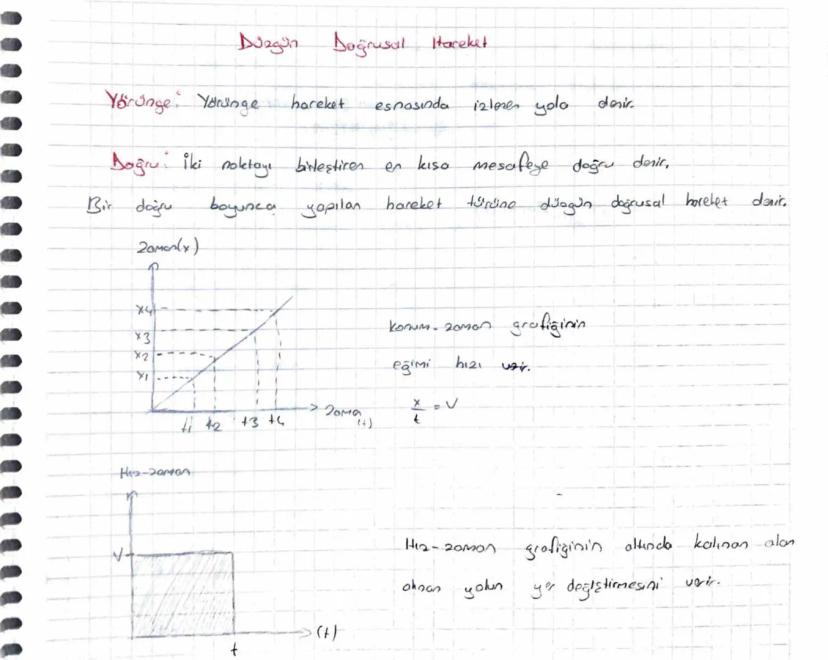 Düzgün Doğrusal Hareket
Yörünge: Yörünge hareket esnasında izlenen yola denir.
Doğru: İki noktayı birleştiren en kısa mesafeye doğru denir.
Bir doğru boyunca yapılan hareket türüne düzgün doğrusal hareket denir.
Zaman(x)
x4
x3
x2
x1
t1 t2 t3 t4
Zama (t)
Konum-zaman grafiğinin
eğimi hızı verir.
x/t = V
Hız-zaman
V
t
(t)
Hız-zaman grafiğinin altında kalınan alan
alınan yolun yer değiştirmesini verir.